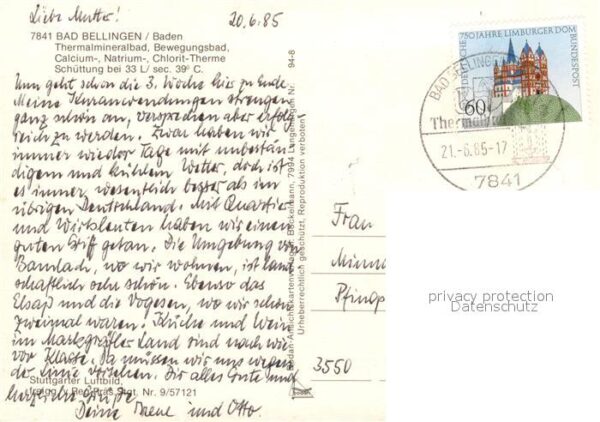 Liebe Mutter! 20.6.85
7841 BAD BELLINGEN / Baden
Thermalmineralbad, Bewegungsbad,
Calcium-, Natrium-, Chlorit-Therme
Schüttung bei 33 L/ sec. 39° C.
Nun geht schon die 3. Woche hier zu Ende.
Meine Kuranwendungen strengen
ganz schön an, versprechen aber erfolg
reich zu werden. Zwar haben wir
immer wieder Tage mit unbestän
digem und kühlem Wetter, doch ist
es immer wesentlich besser als im
übrigen Deutschland. Mit Quartier
und Wirtsleuten haben wir einen
guten Griff getan. Die Umgebung von
Bamlach, wo wir wohnen, ist land
schaftlich sehr schön. Ebenso das
Elsaß und die Vogesen, wo wir schon
zweimal waren. Küche und Wein
im Markgräfler Land sind nach wie
vor Klasse. Da müssen wir uns wegen
der Linie vorsehen. Dir alles Gute und
herzliche Grüße
Deine Irene und Otto.
Stuttgarter Luftbild,
Reg. Präs. Stgt. Nr. 9/57121
94-8
Urheberrechtlich geschützt, Reproduktion verboten
DEUTSCHE BUNDESPOST
750 JAHRE LIMBURGER DOM
60
BAD BELLING
Thermal
21.-6.85-17
7841
Frau
3550
privacy protection
Datenschutz